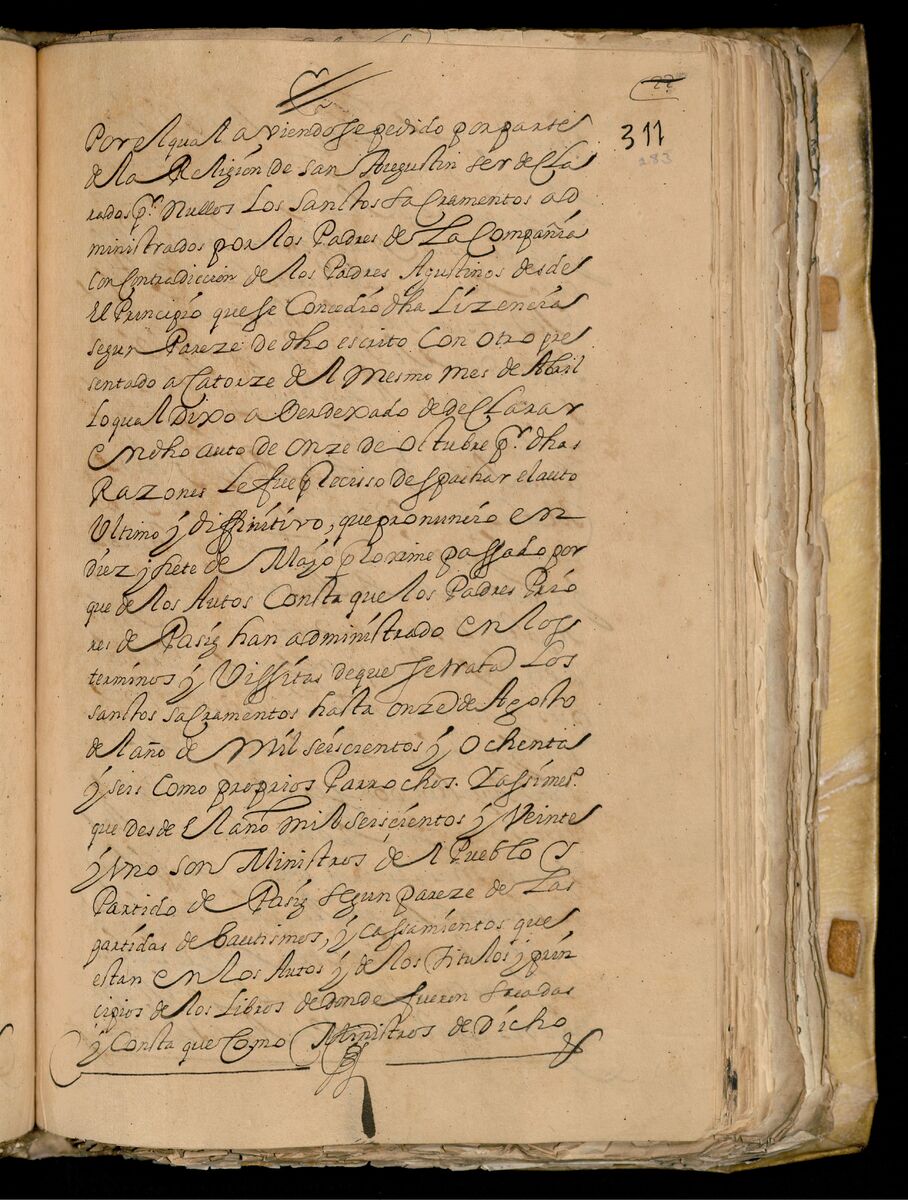 22
311
283
Por el qual aviendose pedido por parte
de la Religion de san Augustin ser decla
rados pr. Nullos Los sanctos sacramentos ad
ministrados por los Padres de La Compañia
con Contradiccion de los Padres Agustinos desde
El Principio que se Concedio dha Lizencia
segun Pareze de dho escrito con otro pre
sentado a Catorze del mesmo mes de Abril
Lo qual Dixo aver dexado de declarar
en dho auto de onze de octubre pr. dhas
Razones Le fue preciso despachar el auto
Ultimo y diffinitivo, que pronuncio en
diez y siete de Mayo proximo passado por
que de los Autos Consta que los Padres Prio
res de Pasig han administrado en los
terminos y Vissitas de que se trata Los
sanctos sacramentos hasta onze de Agosto
del año de Mil seiscientos y ochenta
y seis como proprios Parrochos. Y assimesº
que desde El año mil seiscientos y Veinte
y uno son Ministros del Pueblo y
Partido de Pasig segun pareze de Las
partidas de bautismos, y cassamientos que
estan en los Autos y de los Titulos y prin
cipios de los Libros de donde fueron sacadas
y Consta que Como Ministros de Dicho